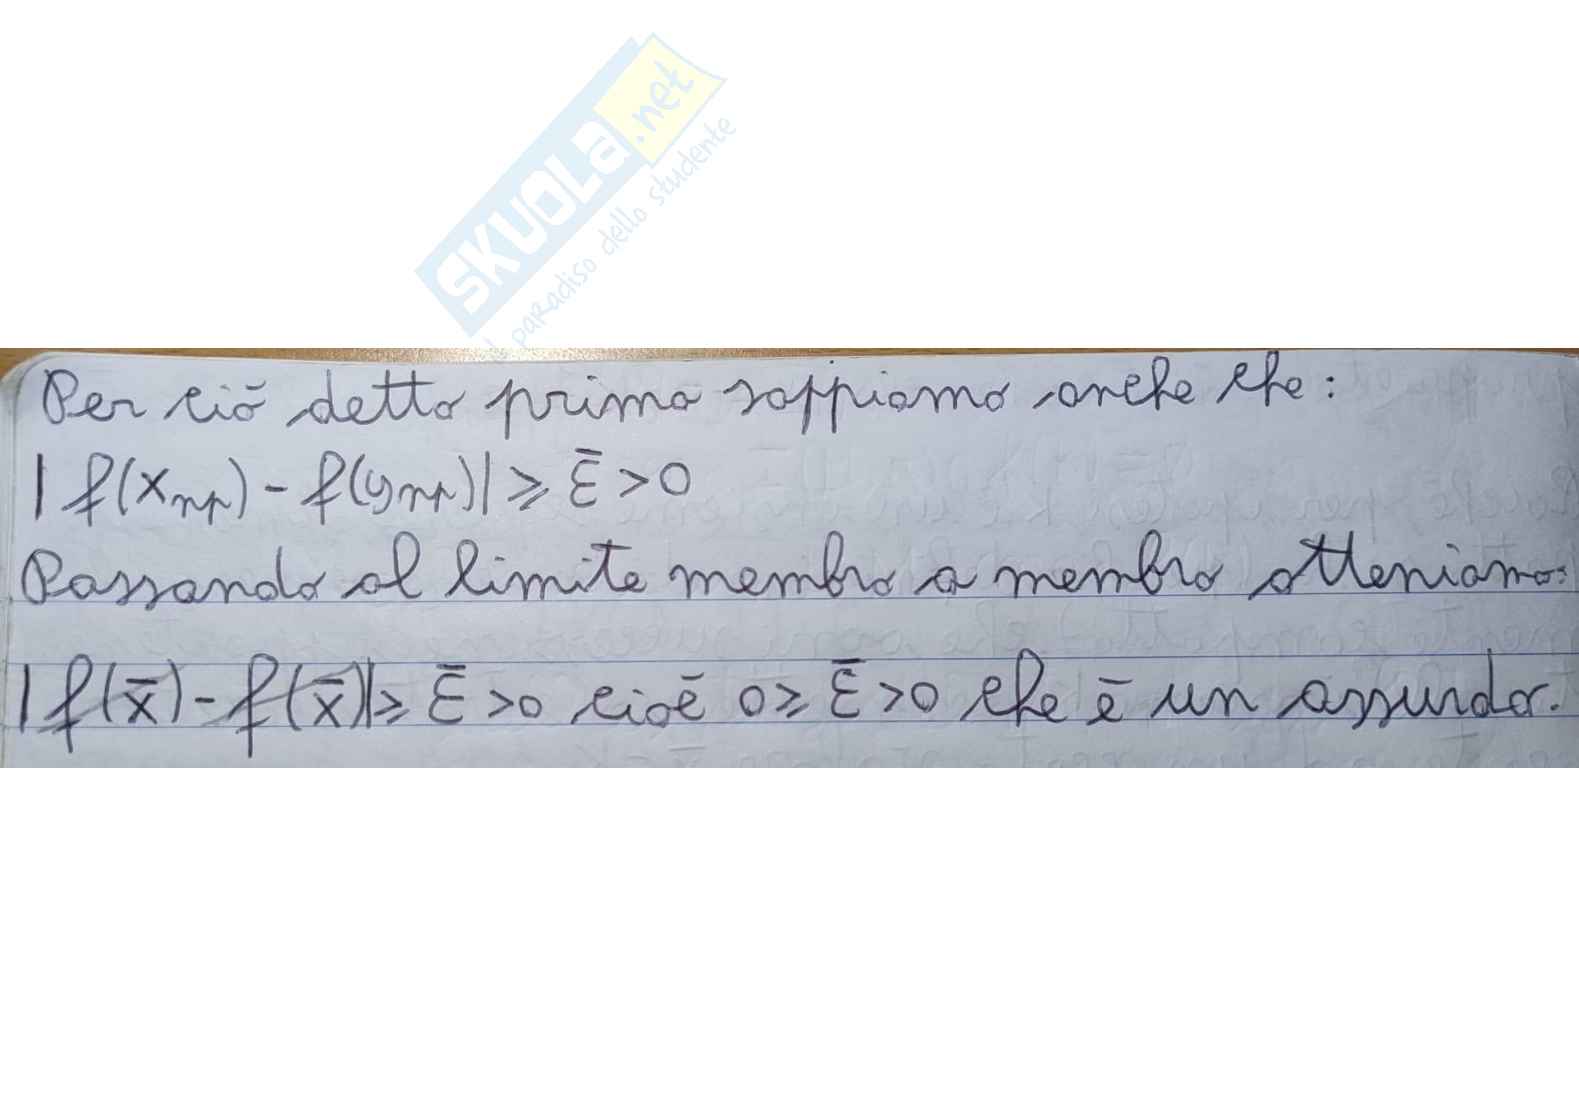 SKUOLA.net
il paradiso dello studente
Per ciò detto prima sappiamo anche che:
|f(x_{n_k}) - f(y_{n_k})| ⩾ ε̄ > 0
Passando al limite membro a membro otteniamo:
|f(x̄) - f(x̄)| ⩾ ε̄ > 0 cioè 0 ⩾ ε̄ > 0 che è un assurdo.